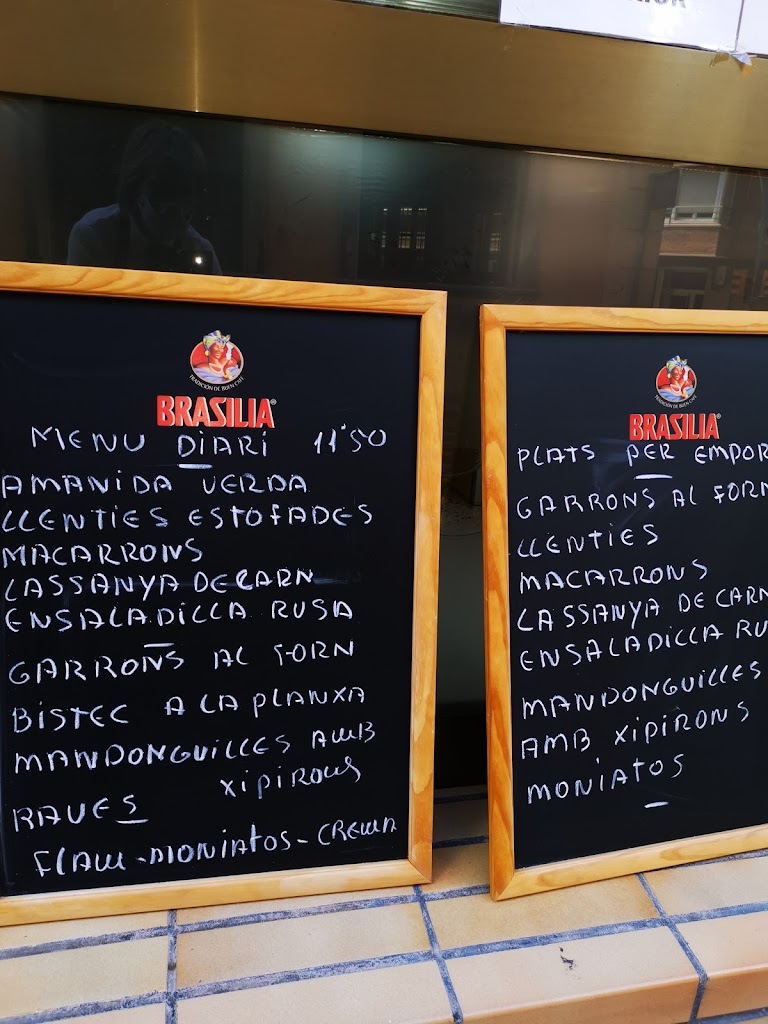 TRADICIÓN DE BUEN CAFÉ
BRASILIA®
MENU DIARI 11'50
AMANIDA VERDA
LLENTIES ESTOFADES
MACARRONS
LASSANYA DE CARN
ENSALADILLA RUSA
GARRONS AL FORN
BISTEC A LA PLANXA
MANDONGUILLES AMB
XIPIRONS
RAVES
FLAM - MONIATOS - CREMA
TRADICIÓN DE BUEN CAFÉ
BRASILIA®
PLATS PER EMPOR
GARRONS AL FORN
LLENTIES
MACARRONS
LASSANYA DE CARN
ENSALADILLA RU
MANDONGUILLES
AMB XIPIRONS
MONIATOS